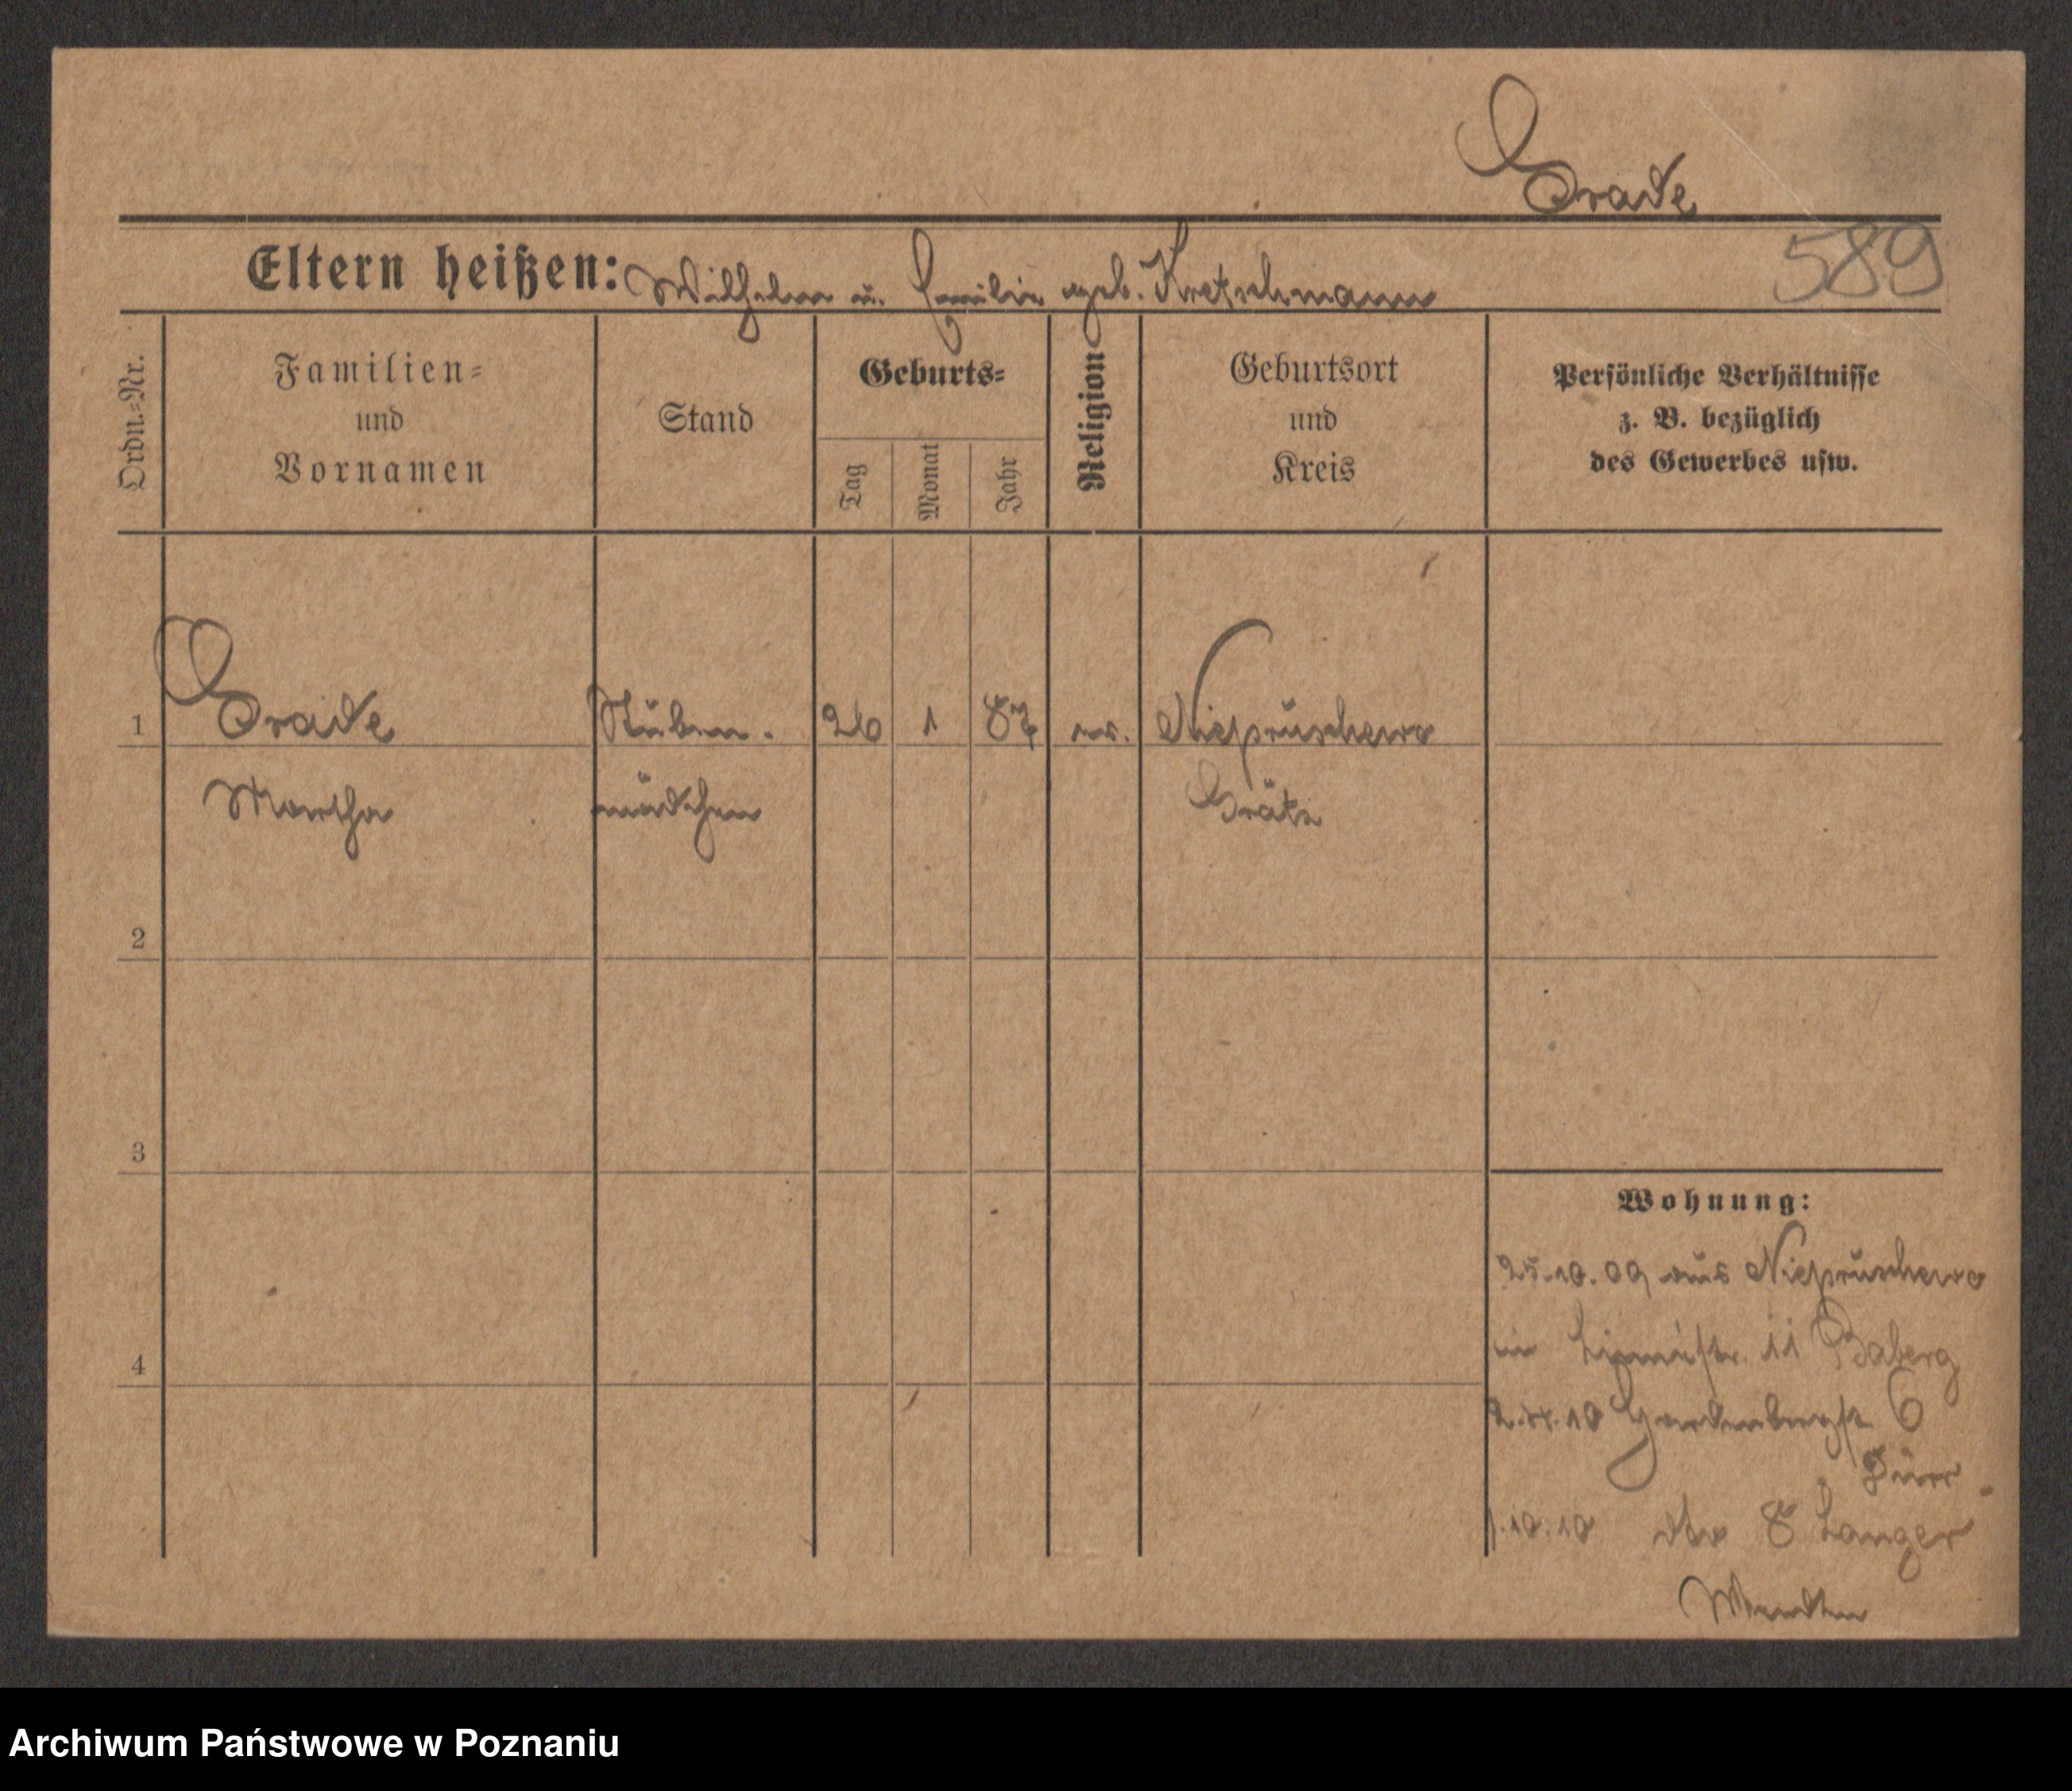 Grade
589
Eltern heißen: Wilhelm u. Emilie geb. Kretschmann
Ordn.-Nr.
Familien-
und
Vornamen
Stand
Geburts-
Tag
Monat
Jahr
Religion
Geburtsort
und
Kreis
Persönliche Verhältnisse
z. B. bezüglich
des Gewerbes usw.
1 Grade Stuben- 26 1 87 ev. Niepruschewo
Martha mädchen Grätz
2
3
4
Wohnung:
25.10.09 aus Niepruschewo
in 11 Baberg
2.4.10 Gardenbergstr. 6
Dürr
1.10.10 dto 8 Langer
Archiwum Państwowe w Poznaniu